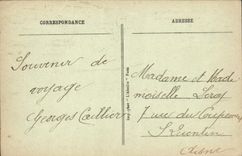 CORRESPONDANCE
ADRESSE
Souvenir de
voyage
Georges Caillier
Madame et Made
moiselle Leroy
7 rue du
St Quentin
Aisne